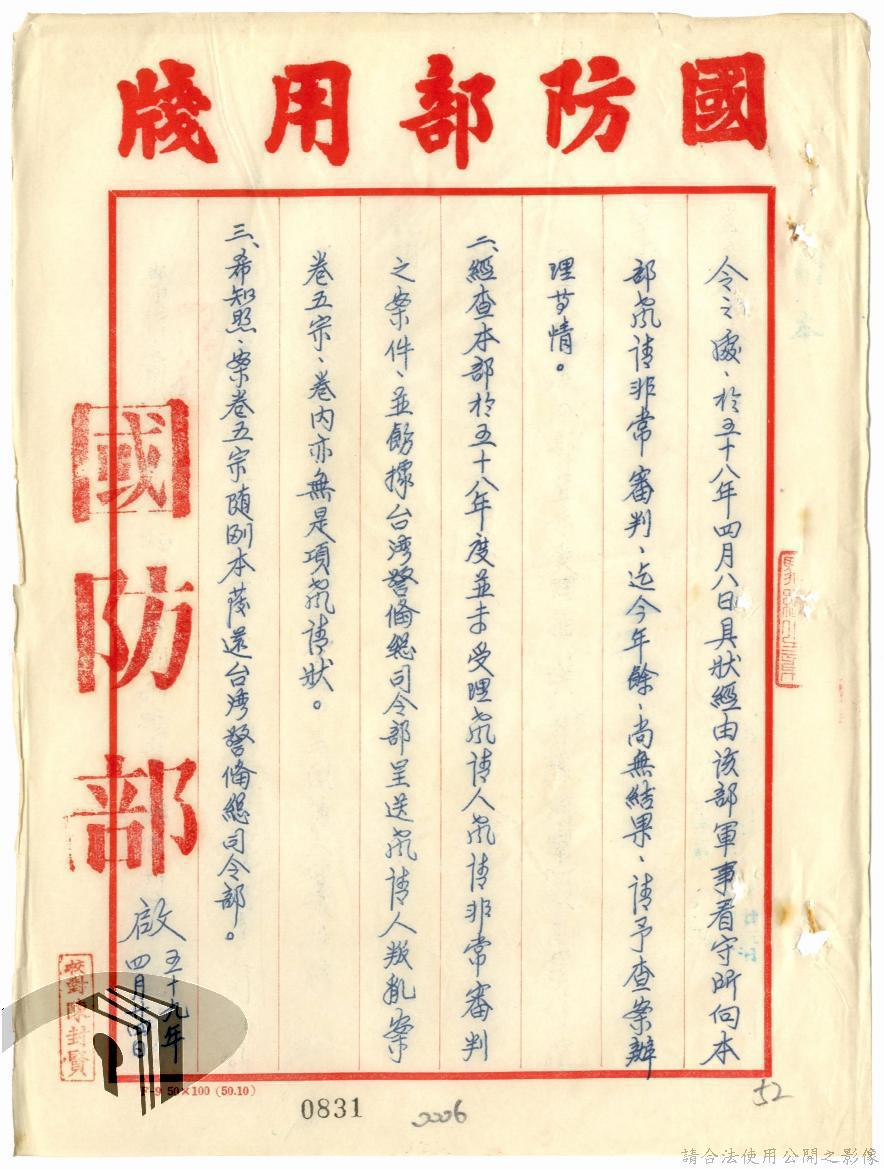 國防部用牋
令之處、於五十八年四月八日具狀經由該部軍事看守所向本
部聲請非常審判、迄今年餘、尚無結果、請予查案辦
理等情。
二、經查本部於五十八年度並未受理聲請人聲請非常審判
之案件、並飭據台湾警備總司令部呈送聲請人叛亂案
卷五宗、卷内亦無是項聲請狀。
三、希知照、案卷五宗随副本發還台湾警備總司令部。
國防部
啟
五十九年
四月 日
校對陳封賢
F-9 50×100 (50.10)
0831
0006
52
請合法使用公開之影像